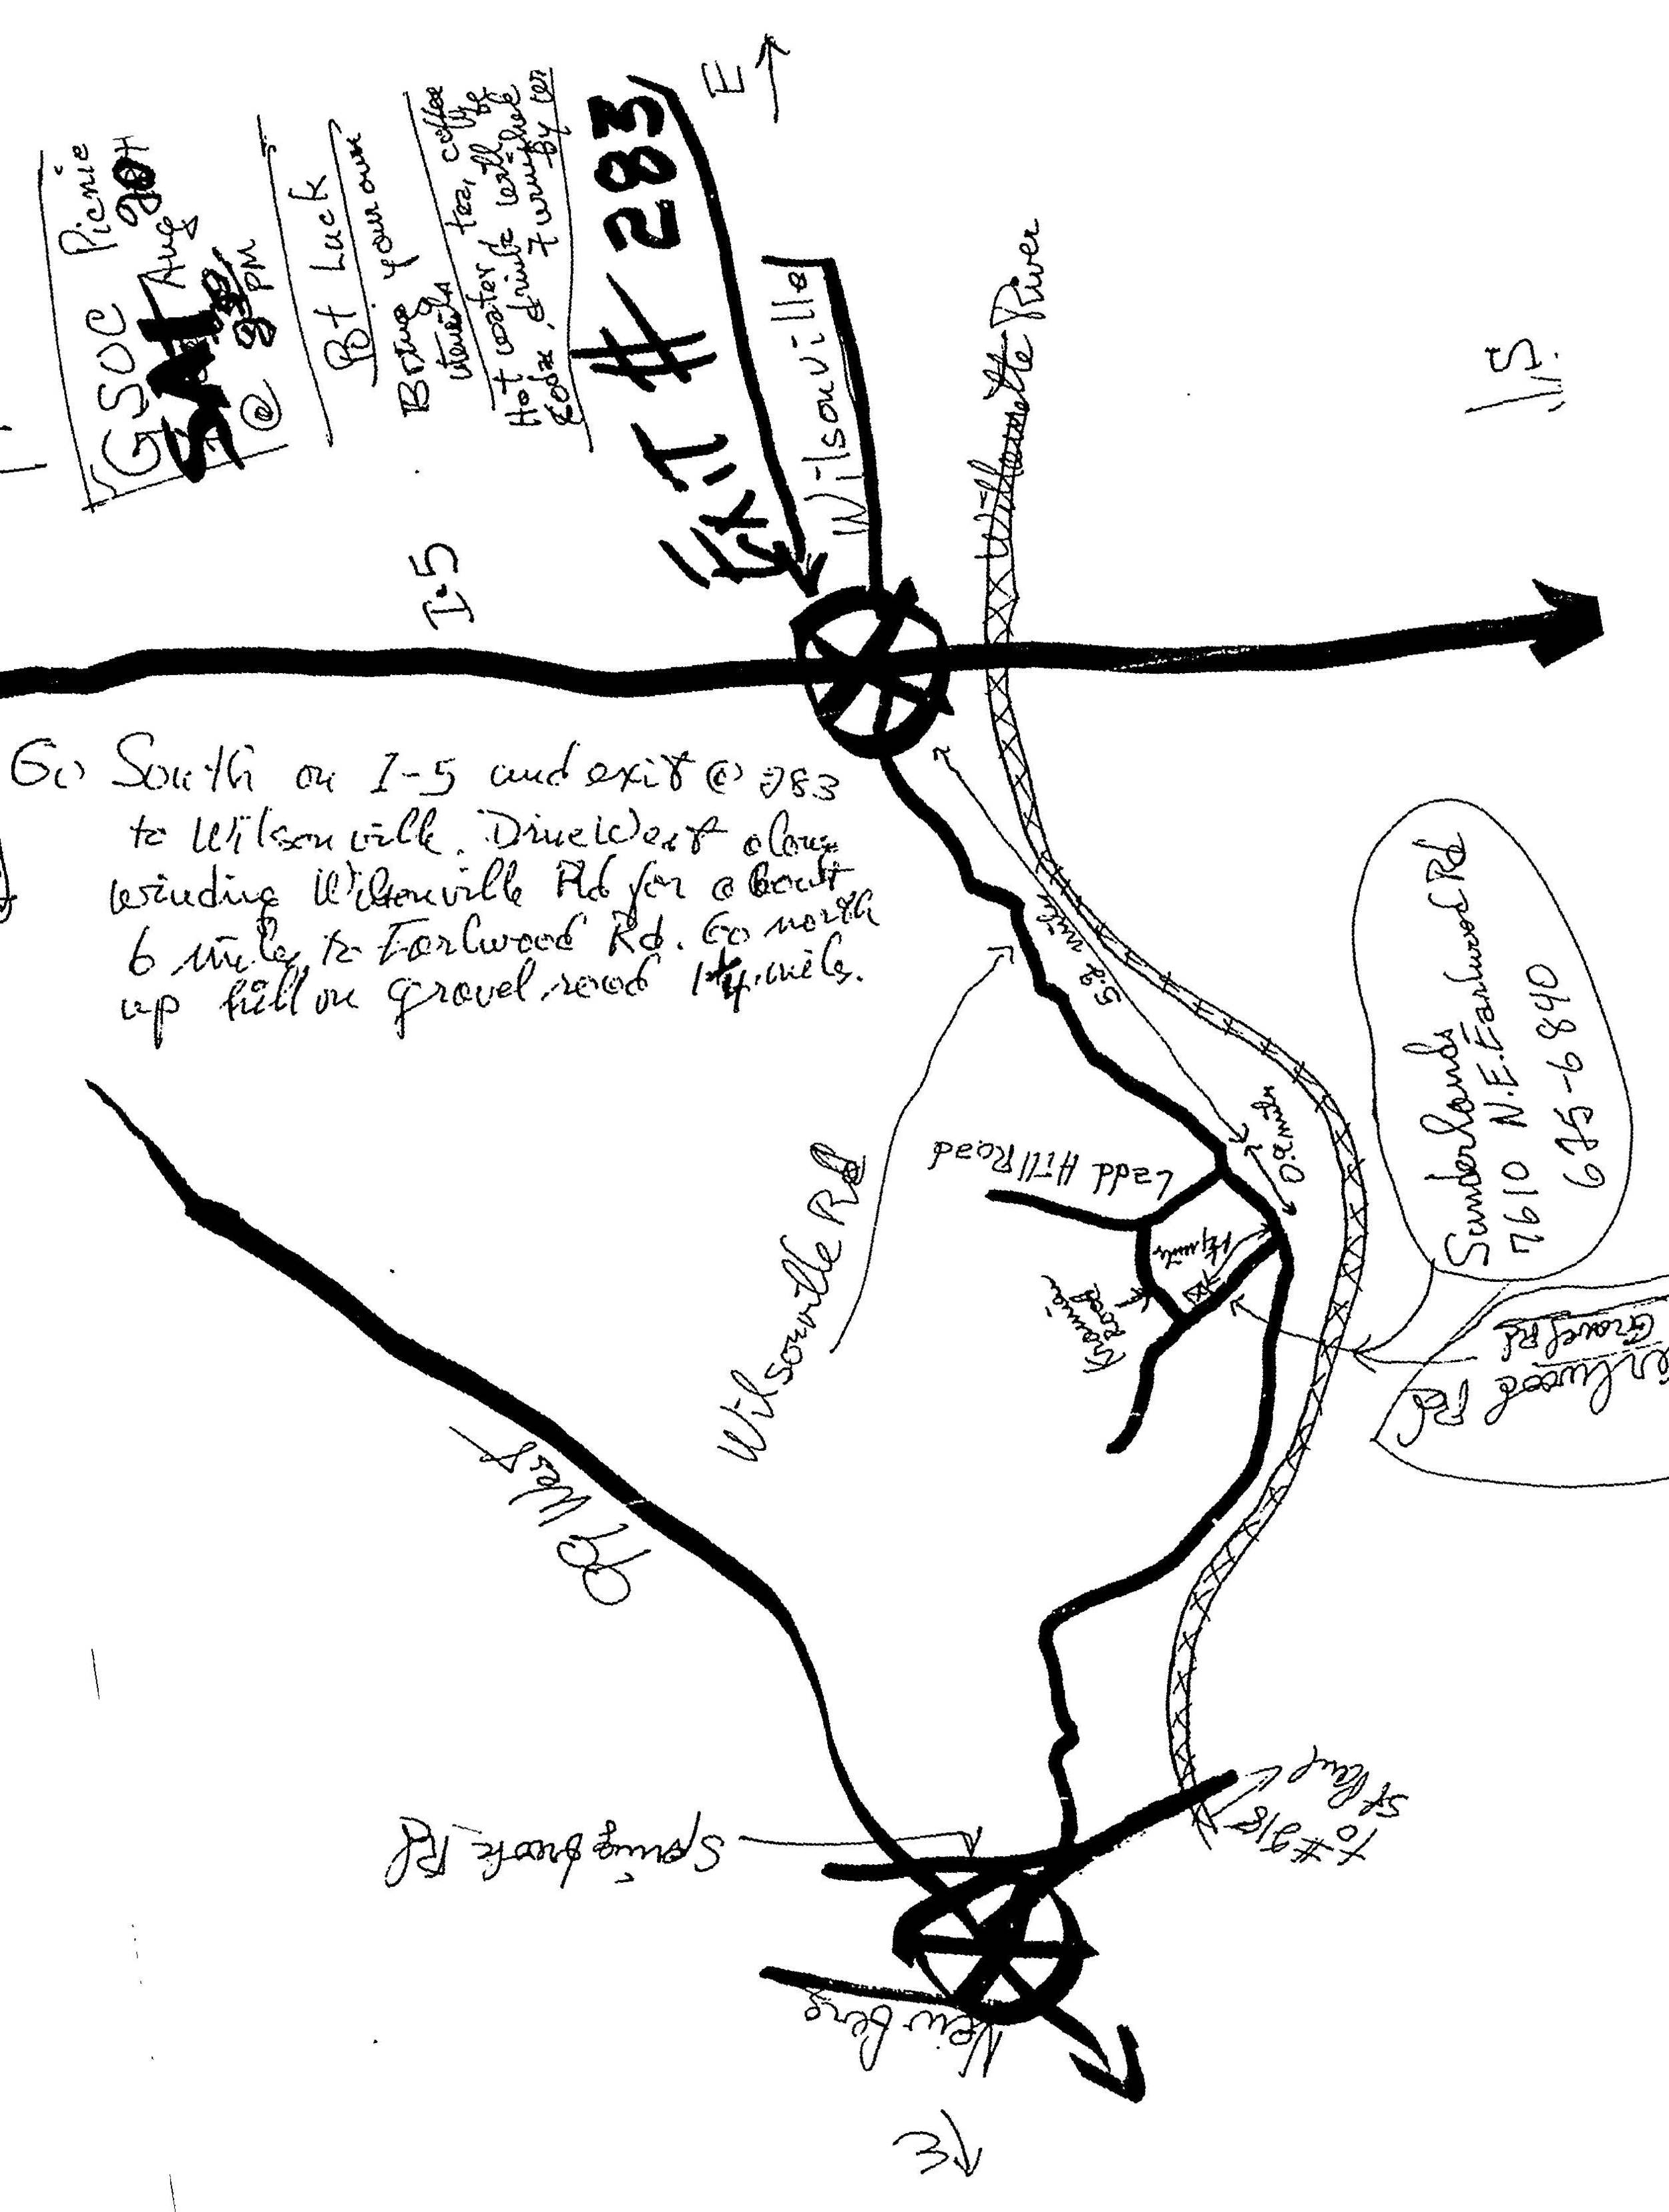 GSOC Picnic
SAT Aug 20
@ PM
Pot Luck
Bring your own
utensils
Hot water, tea, coffee
drink will be
EXIT # 283
E
Wilsonville
Willamette River
I-5
Go South on I-5 and exit @ 283
to Wilsonville. Drive West along
winding Wilsonville Rd for about
6 miles to Earlwood Rd. Go north
up hill on gravel road 1 1/4 miles.
5.8 miles
0.8 miles
Ladd Hill Road
Wilsonville Rd
Sunderlands
7610 N.E. Earlwood Rd
625-6840
Gravel Rd
Rd
Road
99 West
Springbrook Rd
To #219
St Paul
Newberg